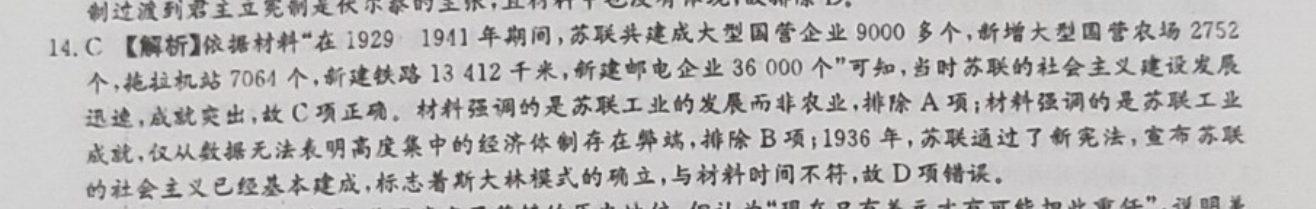 制过渡到君主立宪制是伏尔泰的主张,且材料中也没有体现,故排除D。
14. C 【解析】依据材料“在1929 1941年期间,苏联共建成大型国营企业9000多个,新增大型国营农场2752
个,拖拉机站7064个,新建铁路13 412千米,新建邮电企业36 000个”可知,当时苏联的社会主义建设发展
迅速,成就突出,故C项正确。材料强调的是苏联工业的发展而非农业,排除A项;材料强调的是苏联工业
成就,仅从数据无法表明高度集中的经济体制存在弊端,排除B项;1936年,苏联通过了新宪法,宣布苏联
的社会主义已经基本建成,标志着斯大林模式的确立,与材料时间不符,故D项错误。
“现在只有美元才有可能担此重任”,说明美